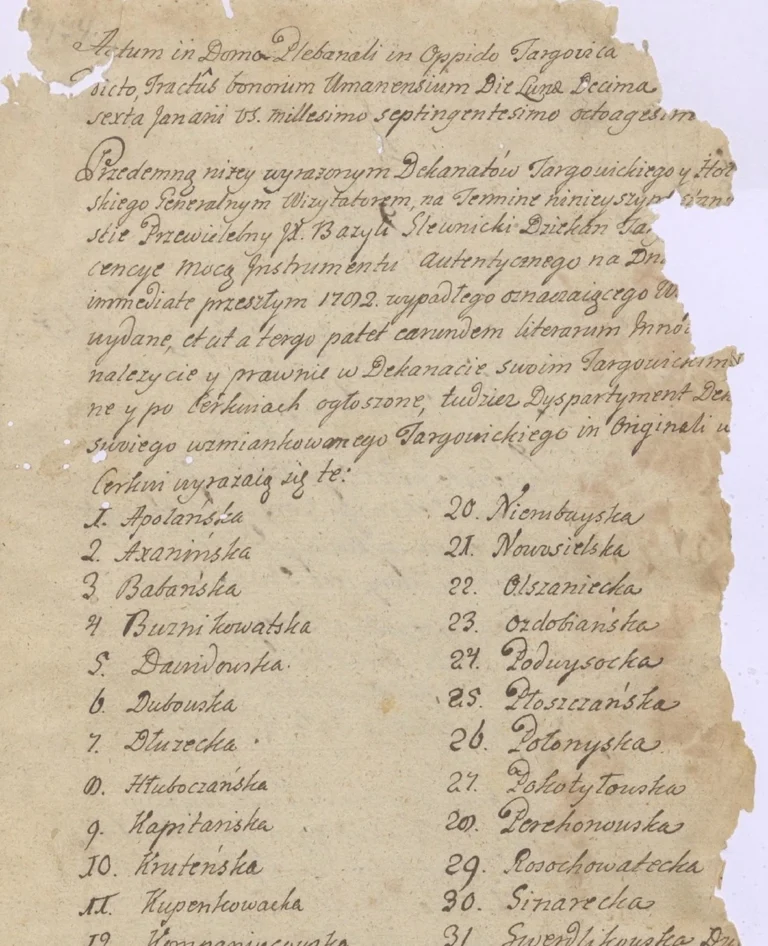 Actum in Domo Plebanali in Oppido Targovica
dicto, Tractûs bonorum Umanensium Die Lunæ Decima
sexta Januarii VS. millesimo septingentesimo octoagesim
Przedemną niżey wyrażonym Dekanatów Targowickiego y
skiego Generalnym Wizytatorem, na Terminie ninieyszym
skie Przewielebny JX. Bazyli Slewnicki Dziekan Tar
cencye mocą Instrumentu autentycznego na Dn
immediate przeszłym 1782. wypadłego oznaczaiącego
wydane, et ut a tergo patet earundem literarum
należycie y prawnie w Dekanacie swoim Targowickim
ne y po Cerkwiach ogłoszone, tudzież Dyspartyment Dek
swoiego wzmiankowanego Targowickiego in Originali
Cerkwi wyrażaią się te:
1. Apolańska
2. Axanińska
3 Babańska
4 Buznikowatska
5. Dawidowska.
6. Dubowska
7. Dłuzecka
8. Hłuboczańska
9. Kapitańska
10. Kruteńska
11. Kupenkowacka
12. Kompanieiowska
20. Niembayska
21. Nowosielska
22. Olszaniecka
23. Ozdobiańska
24. Podwysocka
25. Płoszczańska
26. Polonyska
27. Pokotyłowska
28. Perehonowska
29. Rosochowatecka
30. Sinarecka
31. Swerdlikowska